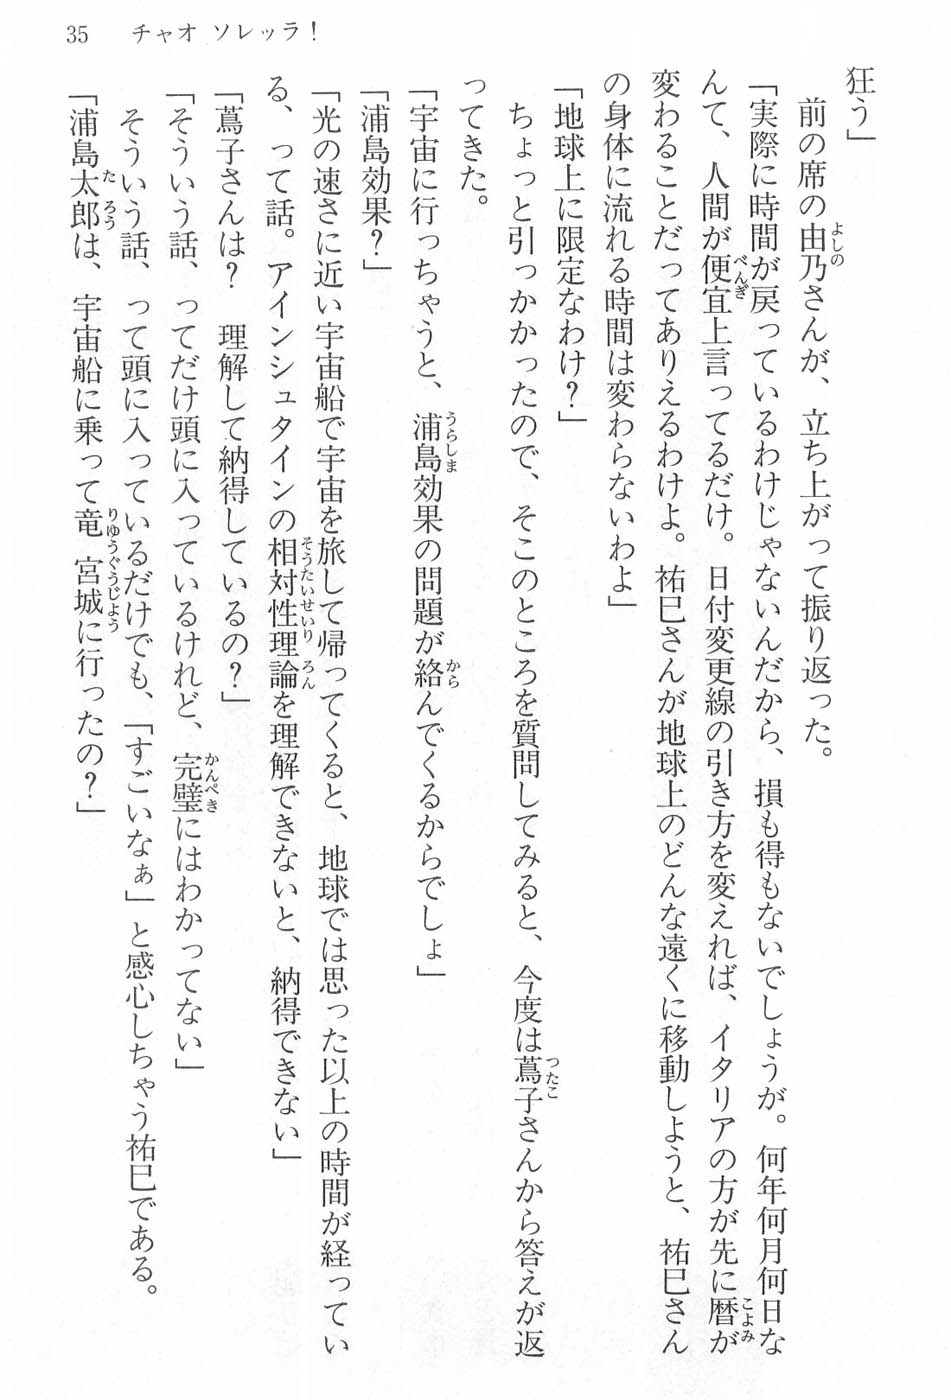 35　チャオ ソレッラ！
狂う」
　前の席の由乃さんが、立ち上がって振り返った。
「実際に時間が戻っているわけじゃないんだから、損も得もないでしょうが。何年何月何日な
んて、人間が便宜上言ってるだけ。日付変更線の引き方を変えれば、イタリアの方が先に暦が
変わることだってありえるわけよ。祐巳さんが地球上のどんな遠くに移動しようと、祐巳さん
の身体に流れる時間は変わらないわよ」
「地球上に限定なわけ？」
　ちょっと引っかかったので、そこのところを質問してみると、今度は蔦子さんから答えが返
ってきた。
「宇宙に行っちゃうと、浦島効果の問題が絡んでくるからでしょ」
「浦島効果？」
「光の速さに近い宇宙船で宇宙を旅して帰ってくると、地球では思った以上の時間が経ってい
る、って話。アインシュタインの相対性理論を理解できないと、納得できない」
「蔦子さんは？　理解して納得しているの？」
「そういう話、ってだけ頭に入っているけれど、完璧にはわかってない」
　そういう話、って頭に入っているだけでも、「すごいなぁ」と感心しちゃう祐巳である。
「浦島太郎は、宇宙船に乗って竜宮城に行ったの？」